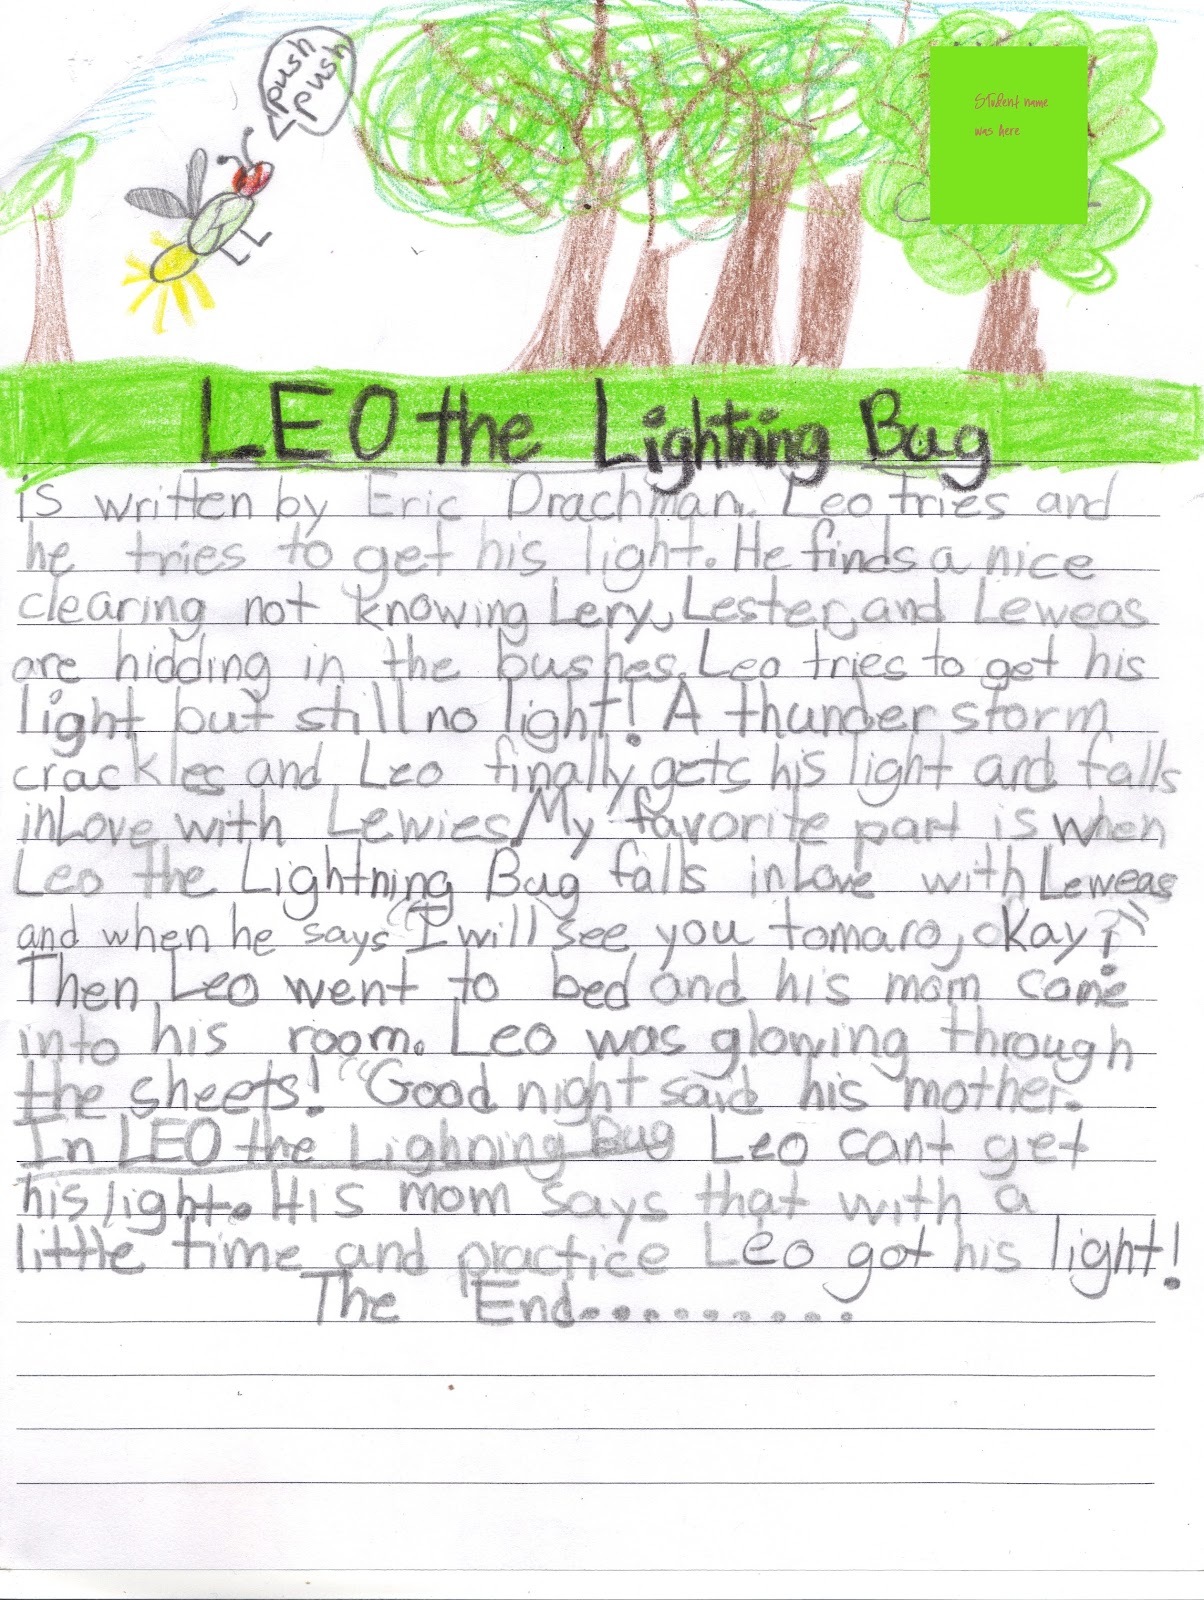 push
push
Student name
was here
LEO the Lightning Bug
is written by Eric Drachman. Leo tries and
he tries to get his light. He finds a nice
clearing not knowing Lery, Lester, and Leweas
are hidding in the bushes. Leo tries to get his
light but still no light! A thunder storm
crackles and Leo finally gets his light and falls
inLove with Lewies. My favorite part is when
Leo the Lightning Bug falls inLove with Leweas
and when he says "I will see you tomaro, okay?"
Then Leo went to bed and his mom came
into his room. Leo was glowing through
the sheets! "Good night said his mother.
In LEO the Lighning Bug Leo cant get
his light. His mom says that with a
little time and practice Leo got his light!
The End..........